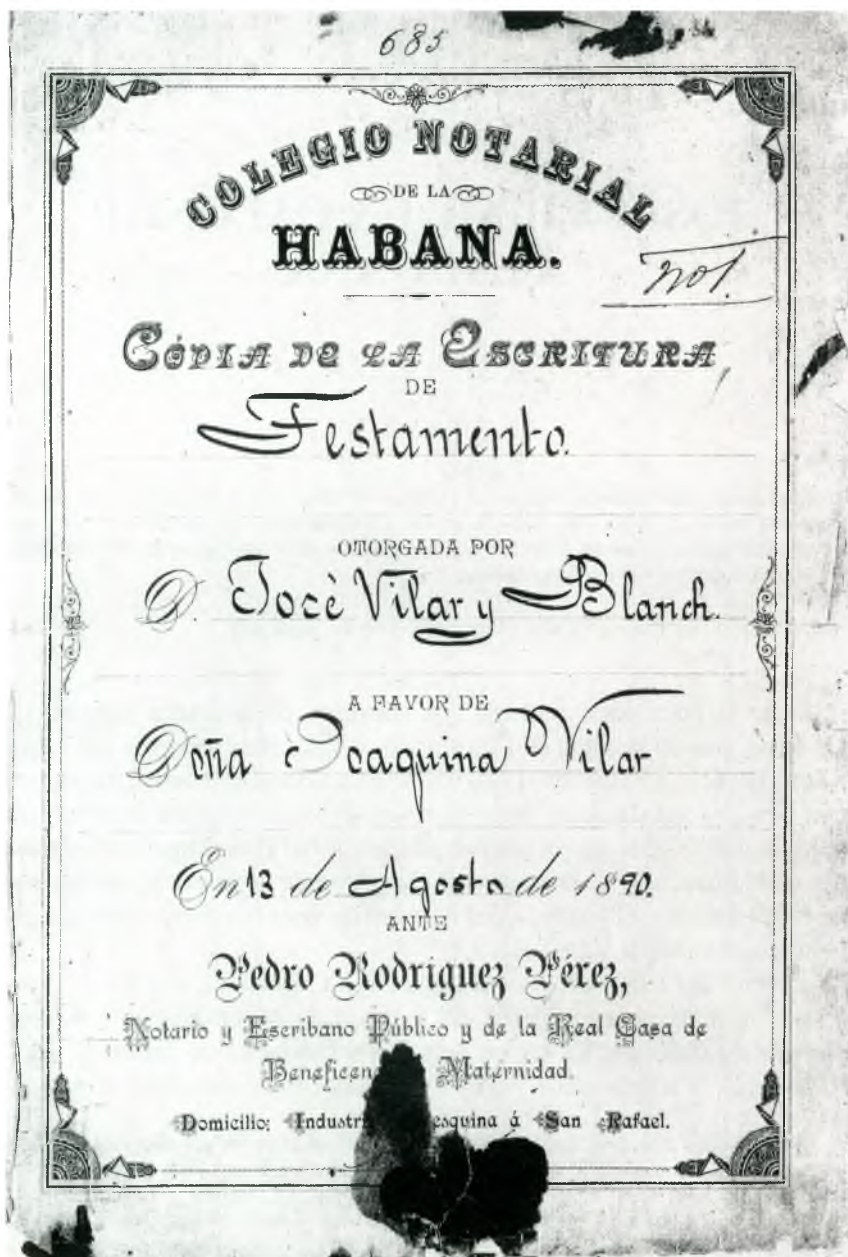 685
COLEGIO NOTARIAL
DE LA
HABANA.
not.
CÓPIA DE LA ESCRITURA
DE
Testamento.
OTORGADA POR
D. José Vilar y Blanch.
A FAVOR DE
Doña Joaquina Vilar
En 13 de Agosto de 1890.
ANTE
Pedro Rodriguez Pérez,
Notario y Escribano Público y de la Real Casa de
Maternidad.
Domicilio: esquina á San Rafael.